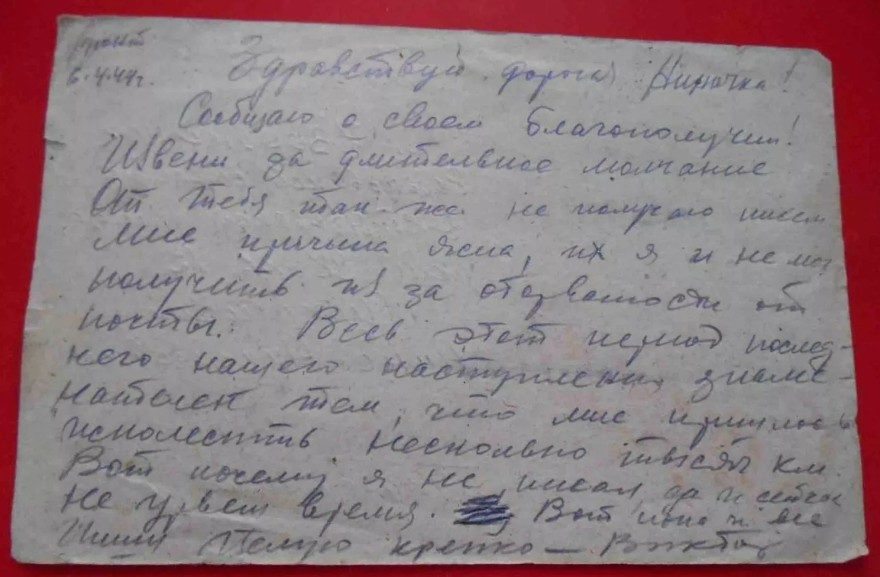 Фронт
6.4.44г.
Здравствуй дорогая Ниночка!
Сообщаю о своем благополучии!
Извени за длительное молчание
От тебя так же не получаю писем
Мне причина ясна, их я и не мог
получить из за оторваности от
почты. Весь этот период послед-
него нашего наступления знаме-
нателен тем, что мне пришлось
исколесить несколько тысяч км.
Вот почему я не писал, да и сейчас
не уделя время. Вот пока и все
Пиши Целую крепко — Виктор